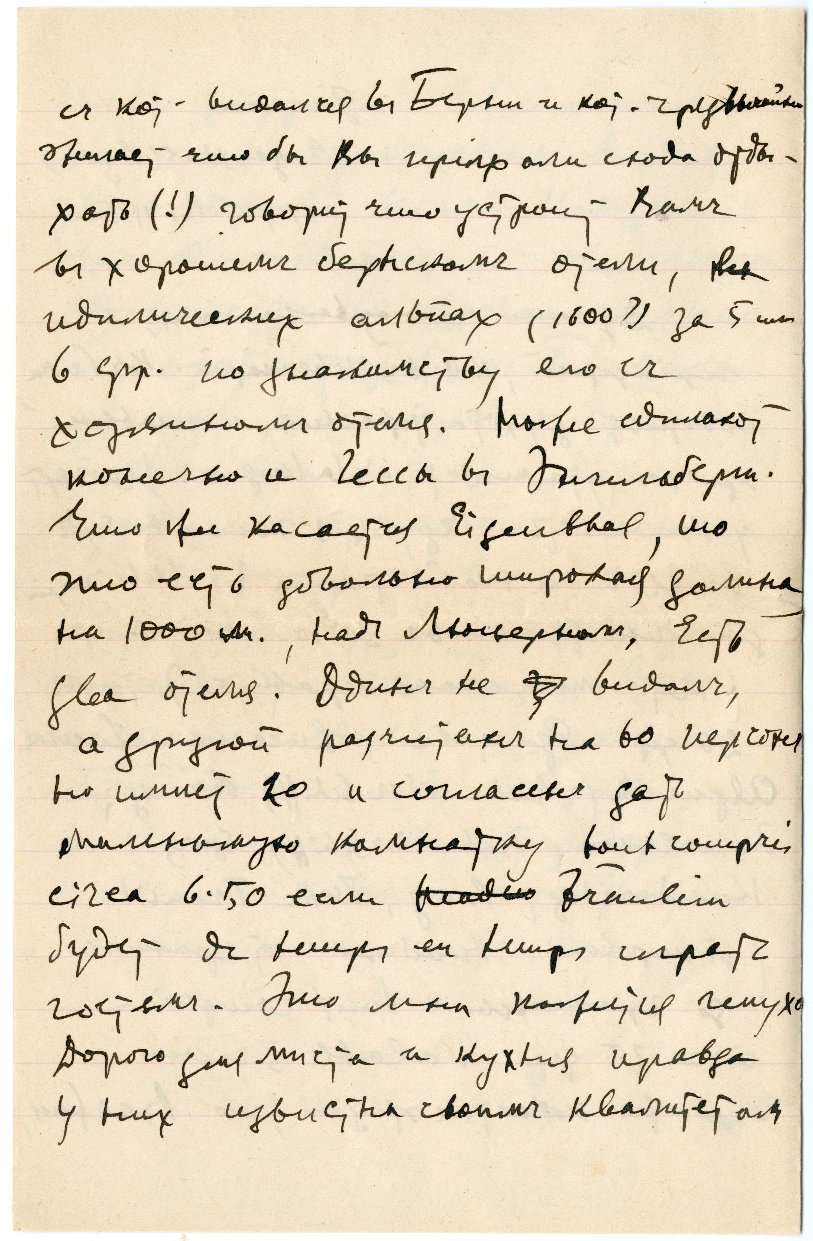 съ кот. видался въ Бернѣ и кот. чрезвычайно
желаетъ что бы Вы пріѣхали сюда отды-
хать (!) говоритъ что устроитъ Вамъ
въ хорошемъ бернскомъ отелѣ,
идиллическихъ альпахъ (1600?) за 5 или
6 фр. по знакомству его съ
хозяиномъ отеля. Тоже сдѣлаютъ
конечно и Гессы въ Энгельбергѣ.
Что же касается Eigenthal, то
это есть довольно широкая долина
на 1000 м., надъ Люцерномъ, Есть
два отеля. Одинъ не видалъ,
а другой разчитанъ на 60 персонъ
но имѣетъ 20 и согласенъ дать
маленькую комнатку, tout compris
circa 6.50 если Fräulein
будетъ de temps en temps играть
гостямъ. Это мнѣ кажется чепуха
Дорого для мѣста и кухня правда
у нихъ извѣстна своимъ квалитетомъ